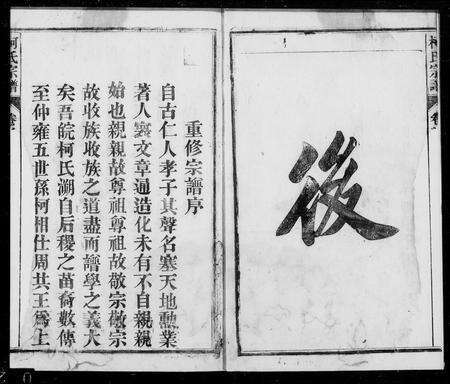 柯氏宗譜
後
重修宗譜序
自古仁人孝子其聲名塞天地勳業
著人寰文章通造化未有不自親親
始也親親故尊祖尊祖故敬宗敬宗
故收族收族之道盡而譜學之義大
矣吾皖柯氏溯自后稷之苗裔數傳
至仲雍五世孫柯相仕周共王為上
柯氏宗譜